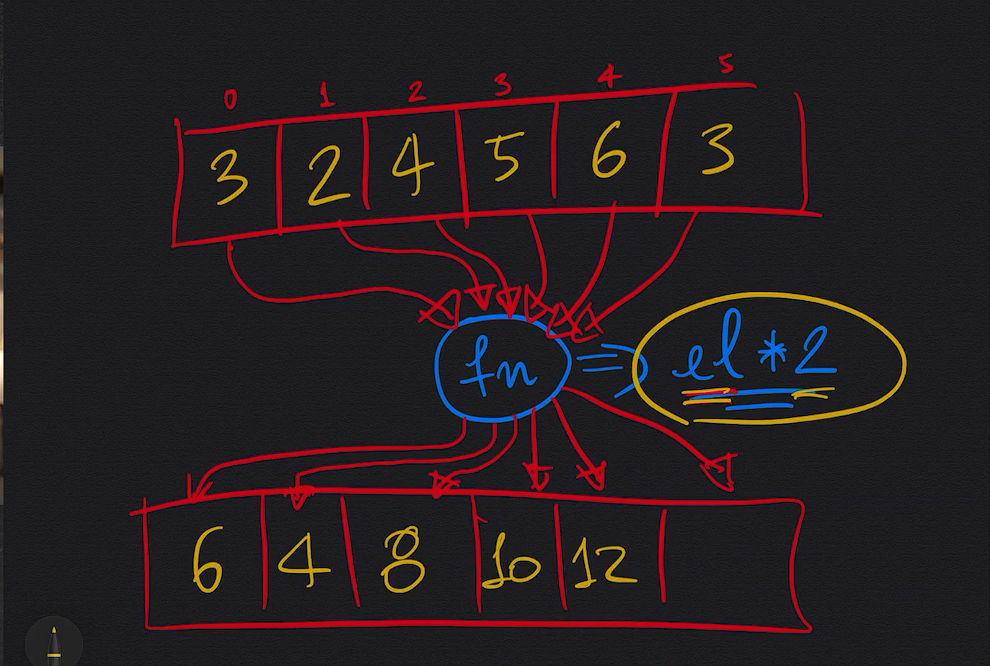 0 1 2 3 4 5
3 2 4 5 6 3
fn => el * 2
6 4 8 10 12